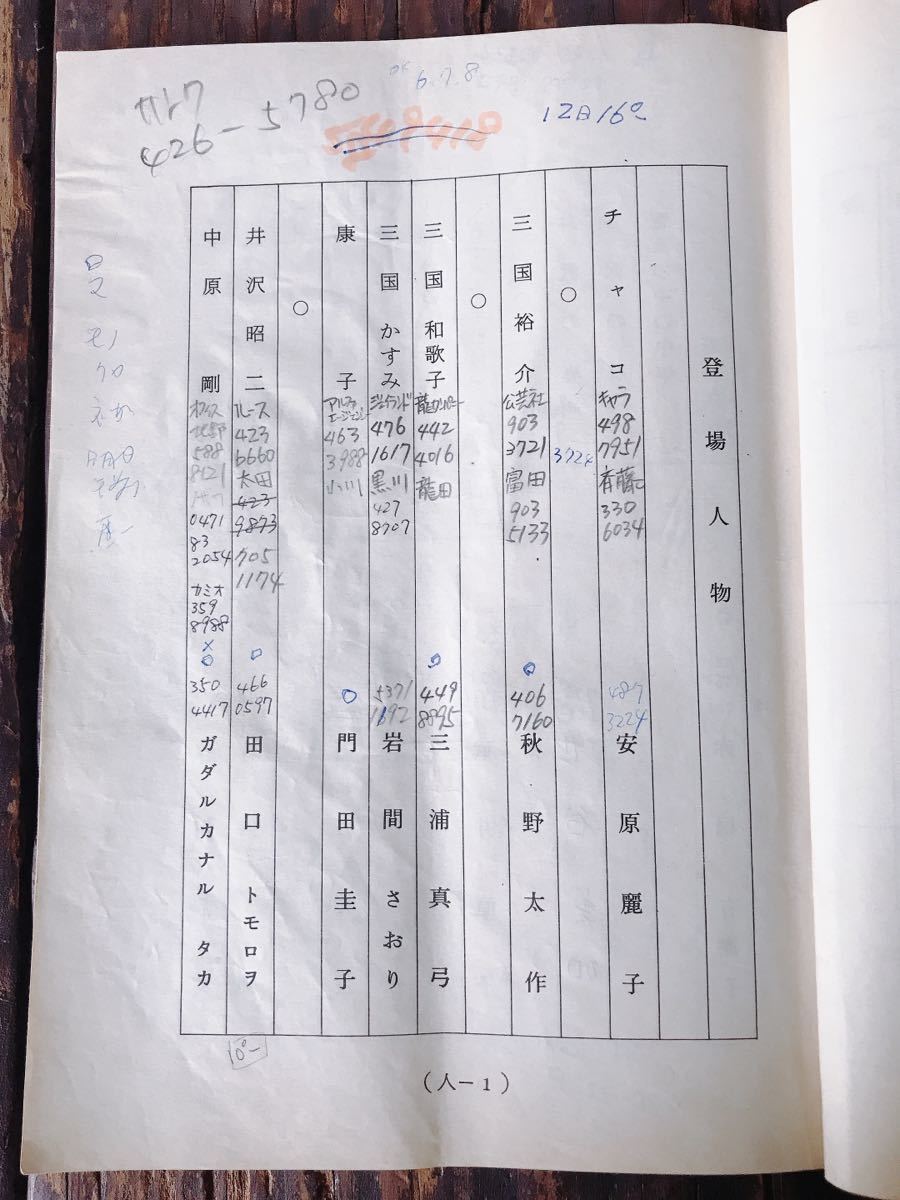 カトウ
426-5780
6.7.8
12日16º
登場人物
チャコ
キャラ
498
7951
斉藤
330
6034
487
3224
安原麗子
○
3724
三国裕介
公芸社
903
3721
富田
903
5133
406
7160
秋野太作
○
三国和歌子
442
4016
龍田
449
8895
三浦真弓
三国かすみ
476
1617
黒川
427
8707
5371
1692
岩間さおり
康子
アルファ
エージェンシー
463
3988
小川
門田圭子
○
井沢昭二
ルース
423
6660
太田
423
9873
705
1174
466
0597
田口トモロヲ
中原剛
オフィス
北野
588
8121
0471
83
2054
カミオ
359
8988
×
350
4417
ガダルカナルタカ
(人-1)